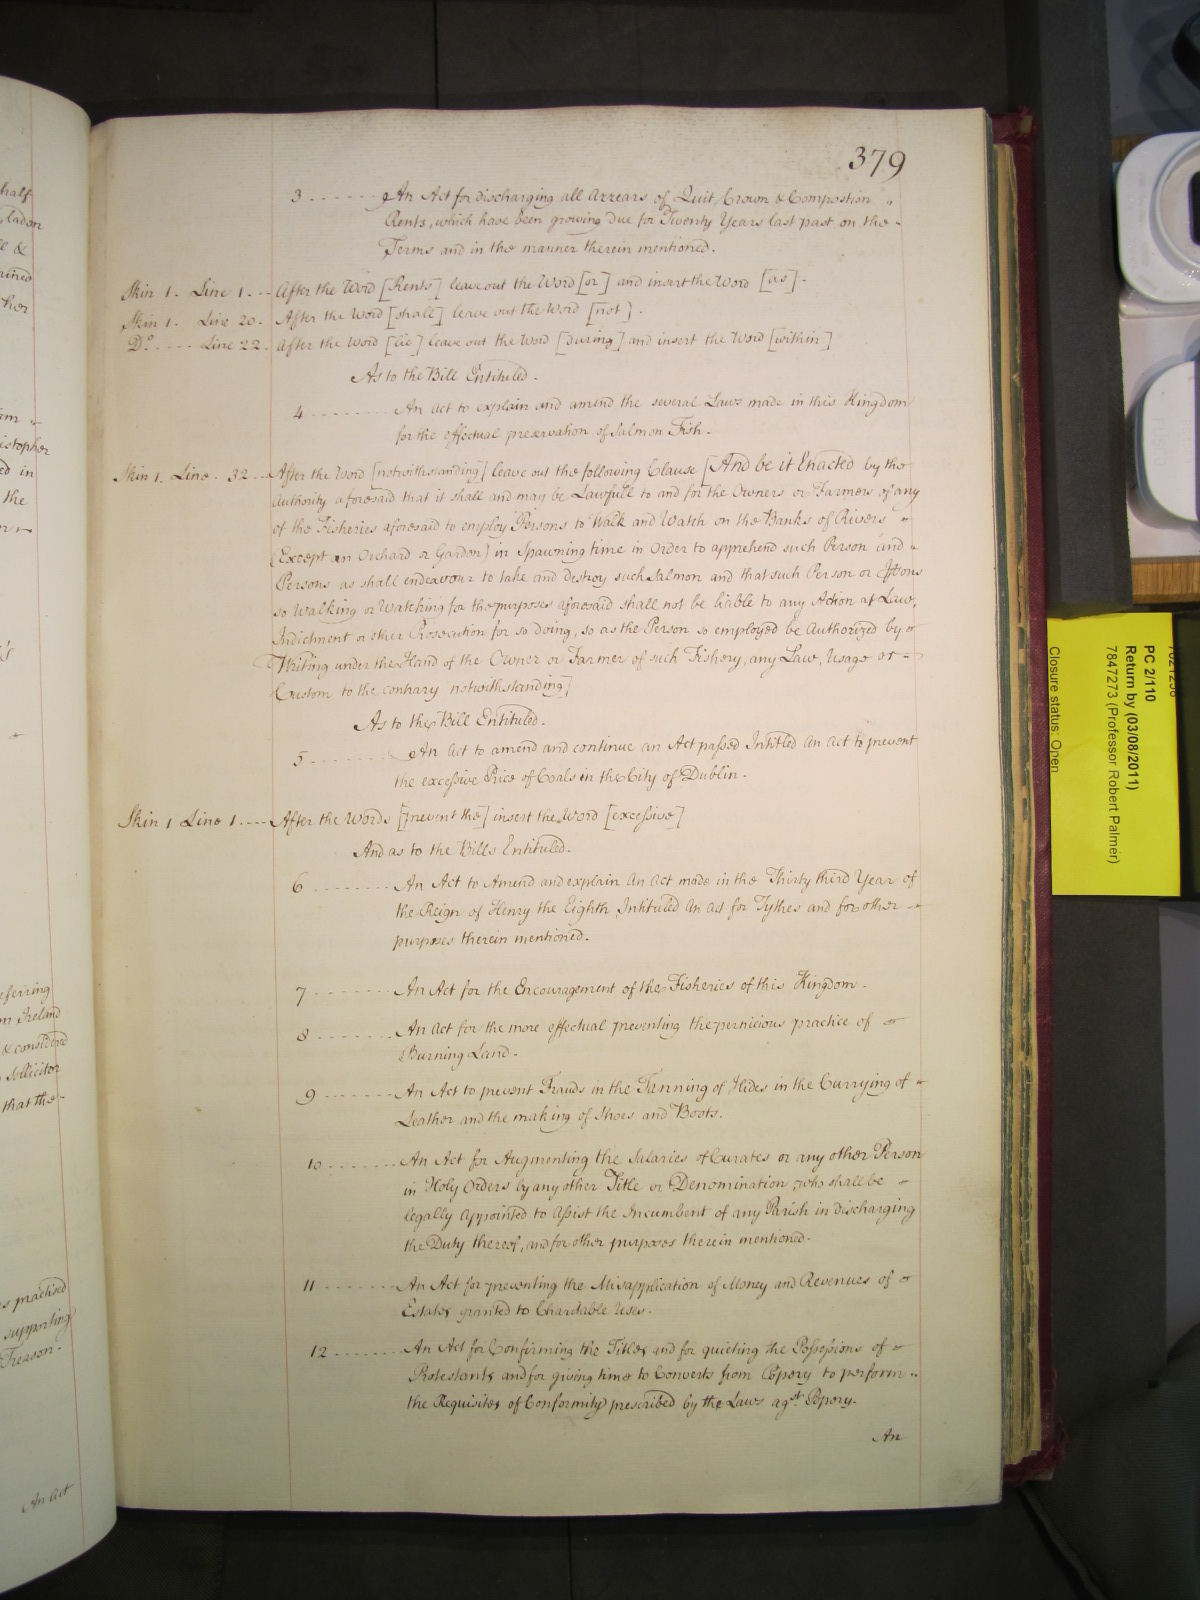 379
3 - - - - - - An Act for discharging all Arrears of Quit Crown & Compostion
Rents, which have been growing Due for Twenty Years last past on the
Terms and in the manner therein mentioned.
Skin 1. Line 1. - - After the Word [Rents] leave out the Word [or] and insert the Word [as].
Skin 1. Line 20. After the Word [shall] leave out the Word [not].
Do. - - - - Line 22. After the Word [lie] leave out the Word [during] and insert the Word [within]
As to the Bill Entituled.
4 - - - - - - - An Act to explain and amend the several Laws made in this Kingdom
for the effectual preservation of Salmon Fish.
Skin 1. Line. 32. - - After the Word [notwithstanding] leave out the following Clause [And be it Enacted by the
Authority aforesaid that it shall and may be Lawfull to and for the Owners or Farmers of any
of the Fisheries aforesaid to employ Persons to Walk and Watch on the Banks of Rivers
(Except an Orchard or Garden) in Spawning time in Order to apprehend such Person and
Persons as shall endeavour to take and destroy such Salmon and that such Person or Psons
so Walking or Watching for the purposes aforesaid shall not be liable to any Action at Law,
Indictment or other Prosecution for so Doing, so as the Person so employed be Authorized by
Writing under the Hand of the Owner or Farmer of such Fishery, any Law, Usage or
Custom to the contrary notwithstanding]
As to the Bill Entituled.
5 - - - - - - - An Act to amend and continue an Act passed Intitled An Act to prevent
the excessive Price of Coals in the City of Dublin.
Skin 1 Line 1. - - - After the Words [prevent the] insert the Word [excessive]
And as to the Bills Entituled.
6 - - - - - - - An Act to Amend and explain An Act made in the Thirty third Year of
the Reign of Henry the Eighth Intituled An Act for Tythes and for other
purposes therein mentioned.
7 - - - - - - - An Act for the Encouragement of the Fisheries of this Kingdom.
8 - - - - - - - An Act for the more effectual preventing the pernicious practice of
Burning Land.
9 - - - - - - - An Act to prevent Frauds in the Tanning of Hides in the Currying of
Leather and the making of Shoes and Boots.
10 - - - - - - - An Act for Augmenting the Salaries of Curates or any other Person
in Holy Orders by any other Title or Denomination who shall be
legally Appointed to Assist the Incumbent of any Parish in discharging
the Duty thereof, and for other purposes therein mentioned.
11 - - - - - - - An Act for preventing the Misapplication of Money and Revenues of
Estates granted to Charitable Uses.
12 - - - - - - - An Act for Confirming the Titles and for quieting the Possessions of
Protestants and for giving time to Converts from Popery to perform
the Requisites of Conformity prescribed by the Laws agst. Popery.
An
half
ladon
&
ained
her
istopher
ed in
the
eferring
m Ireland
& considered
Sollicitor
that the
s practised
supporting
Treason.
An Act
PC 2/110
Return by (03/08/2011)
7847273 (Professor Robert Palmer)
Closure status: Open